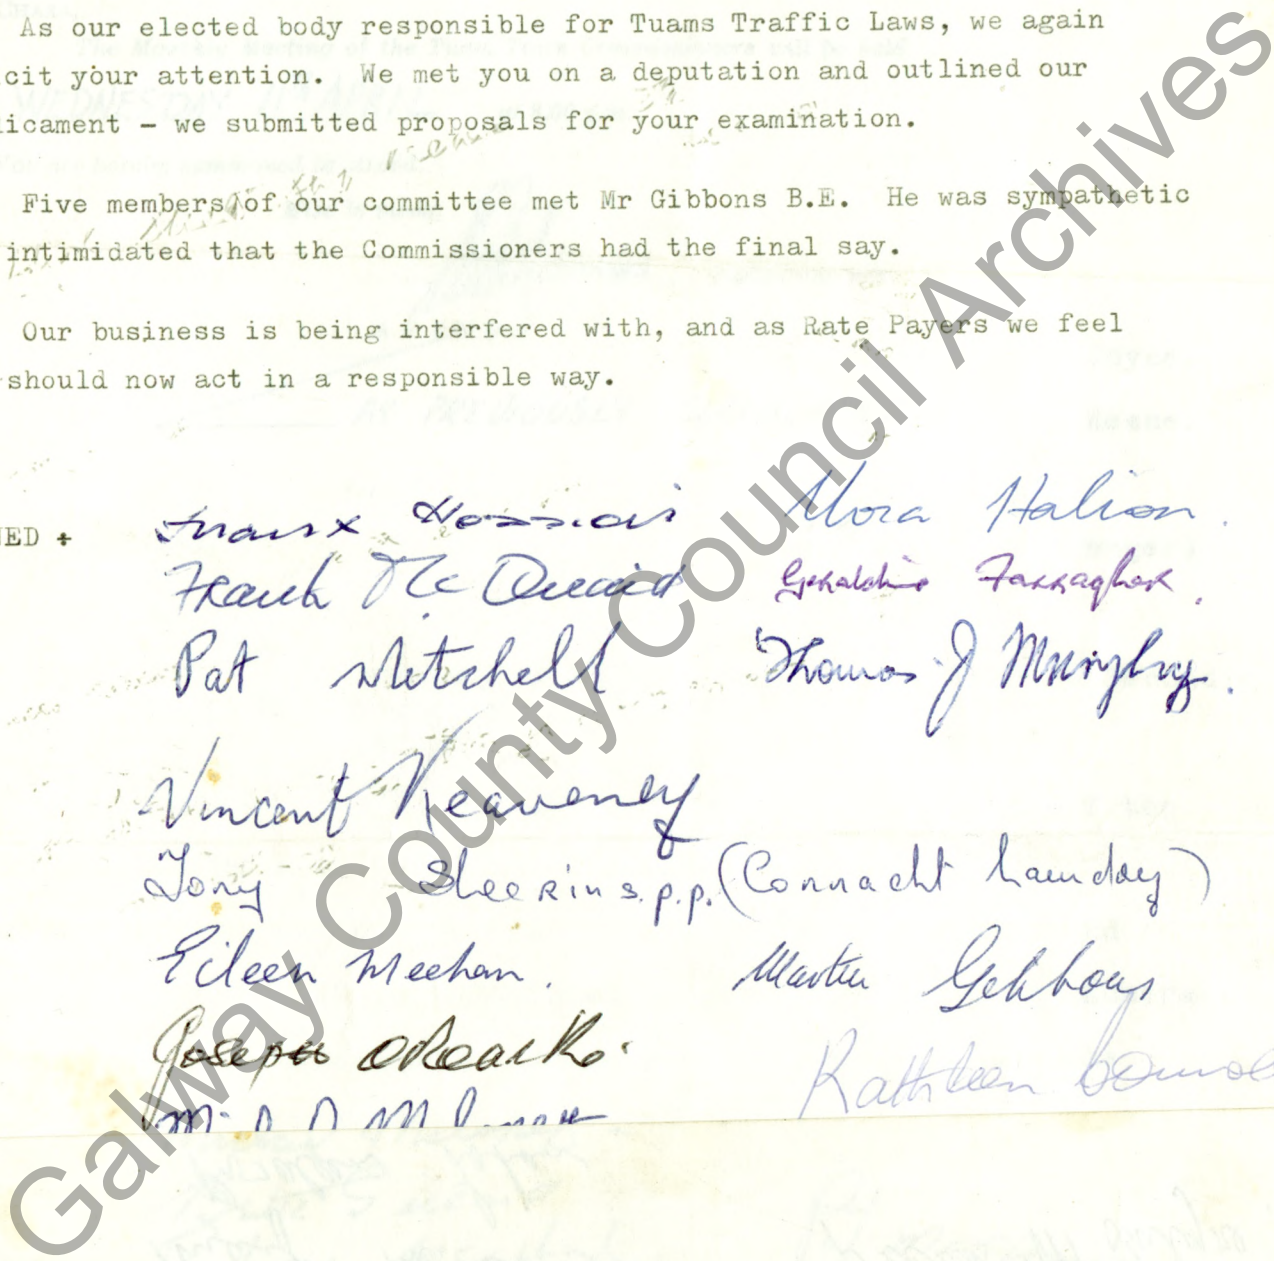 As our elected body responsible for Tuams Traffic Laws, we again
cit your attention. We met you on a deputation and outlined our
licament - we submitted proposals for your examination.
Five members of our committee met Mr Gibbons B.E. He was sympathetic
intimidated that the Commissioners had the final say.
Our business is being interfered with, and as Rate Payers we feel
should now act in a responsible way.
NED +
Nora Halion.
Frank Mc Quaid Geraldine Farragher.
Pat Mitchell Thomas J Murphy.
Vincent Keaveney
Tony Sheerin s.p.p. (Connacht Laundry)
Eileen Meehan. Martin Gibbons
Joseph
Kathleen
Galway County Council Archives